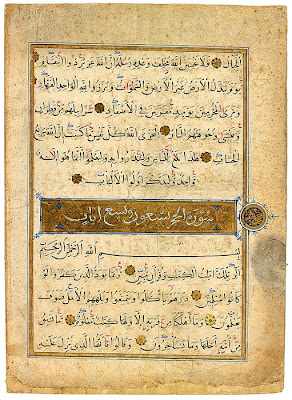 الجبال فلا تحسبن الله مخلف وعده رسله إن الله عزيز ذو انتقام
يوم تبدل الأرض غير الأرض والسموات وبرزوا لله الواحد القهار
وترى المجرمين يومئذ مقرنين في الأصفاد سرابيلهم من قطران
وتغشى وجوههم النار ليجزي الله كل نفس ما كسبت إن الله سريع
الحساب هذا بلاغ للناس ولينذروا به وليعلموا أنما هو إله
واحد وليذكر أولوا الألباب
سورة الحجر تسعون وتسع آيات
بسم الله الرحمن الرحيم
الر تلك آيات الكتاب وقرآن مبين ربما يود الذين كفروا لو
كانوا مسلمين ذرهم يأكلوا ويتمتعوا ويلههم الأمل فسوف
يعلمون وما أهلكنا من قرية إلا ولها كتاب معلوم ما تسبق
من أمة أجلها وما يستأخرون وقالوا يا أيها الذي نزل عليه